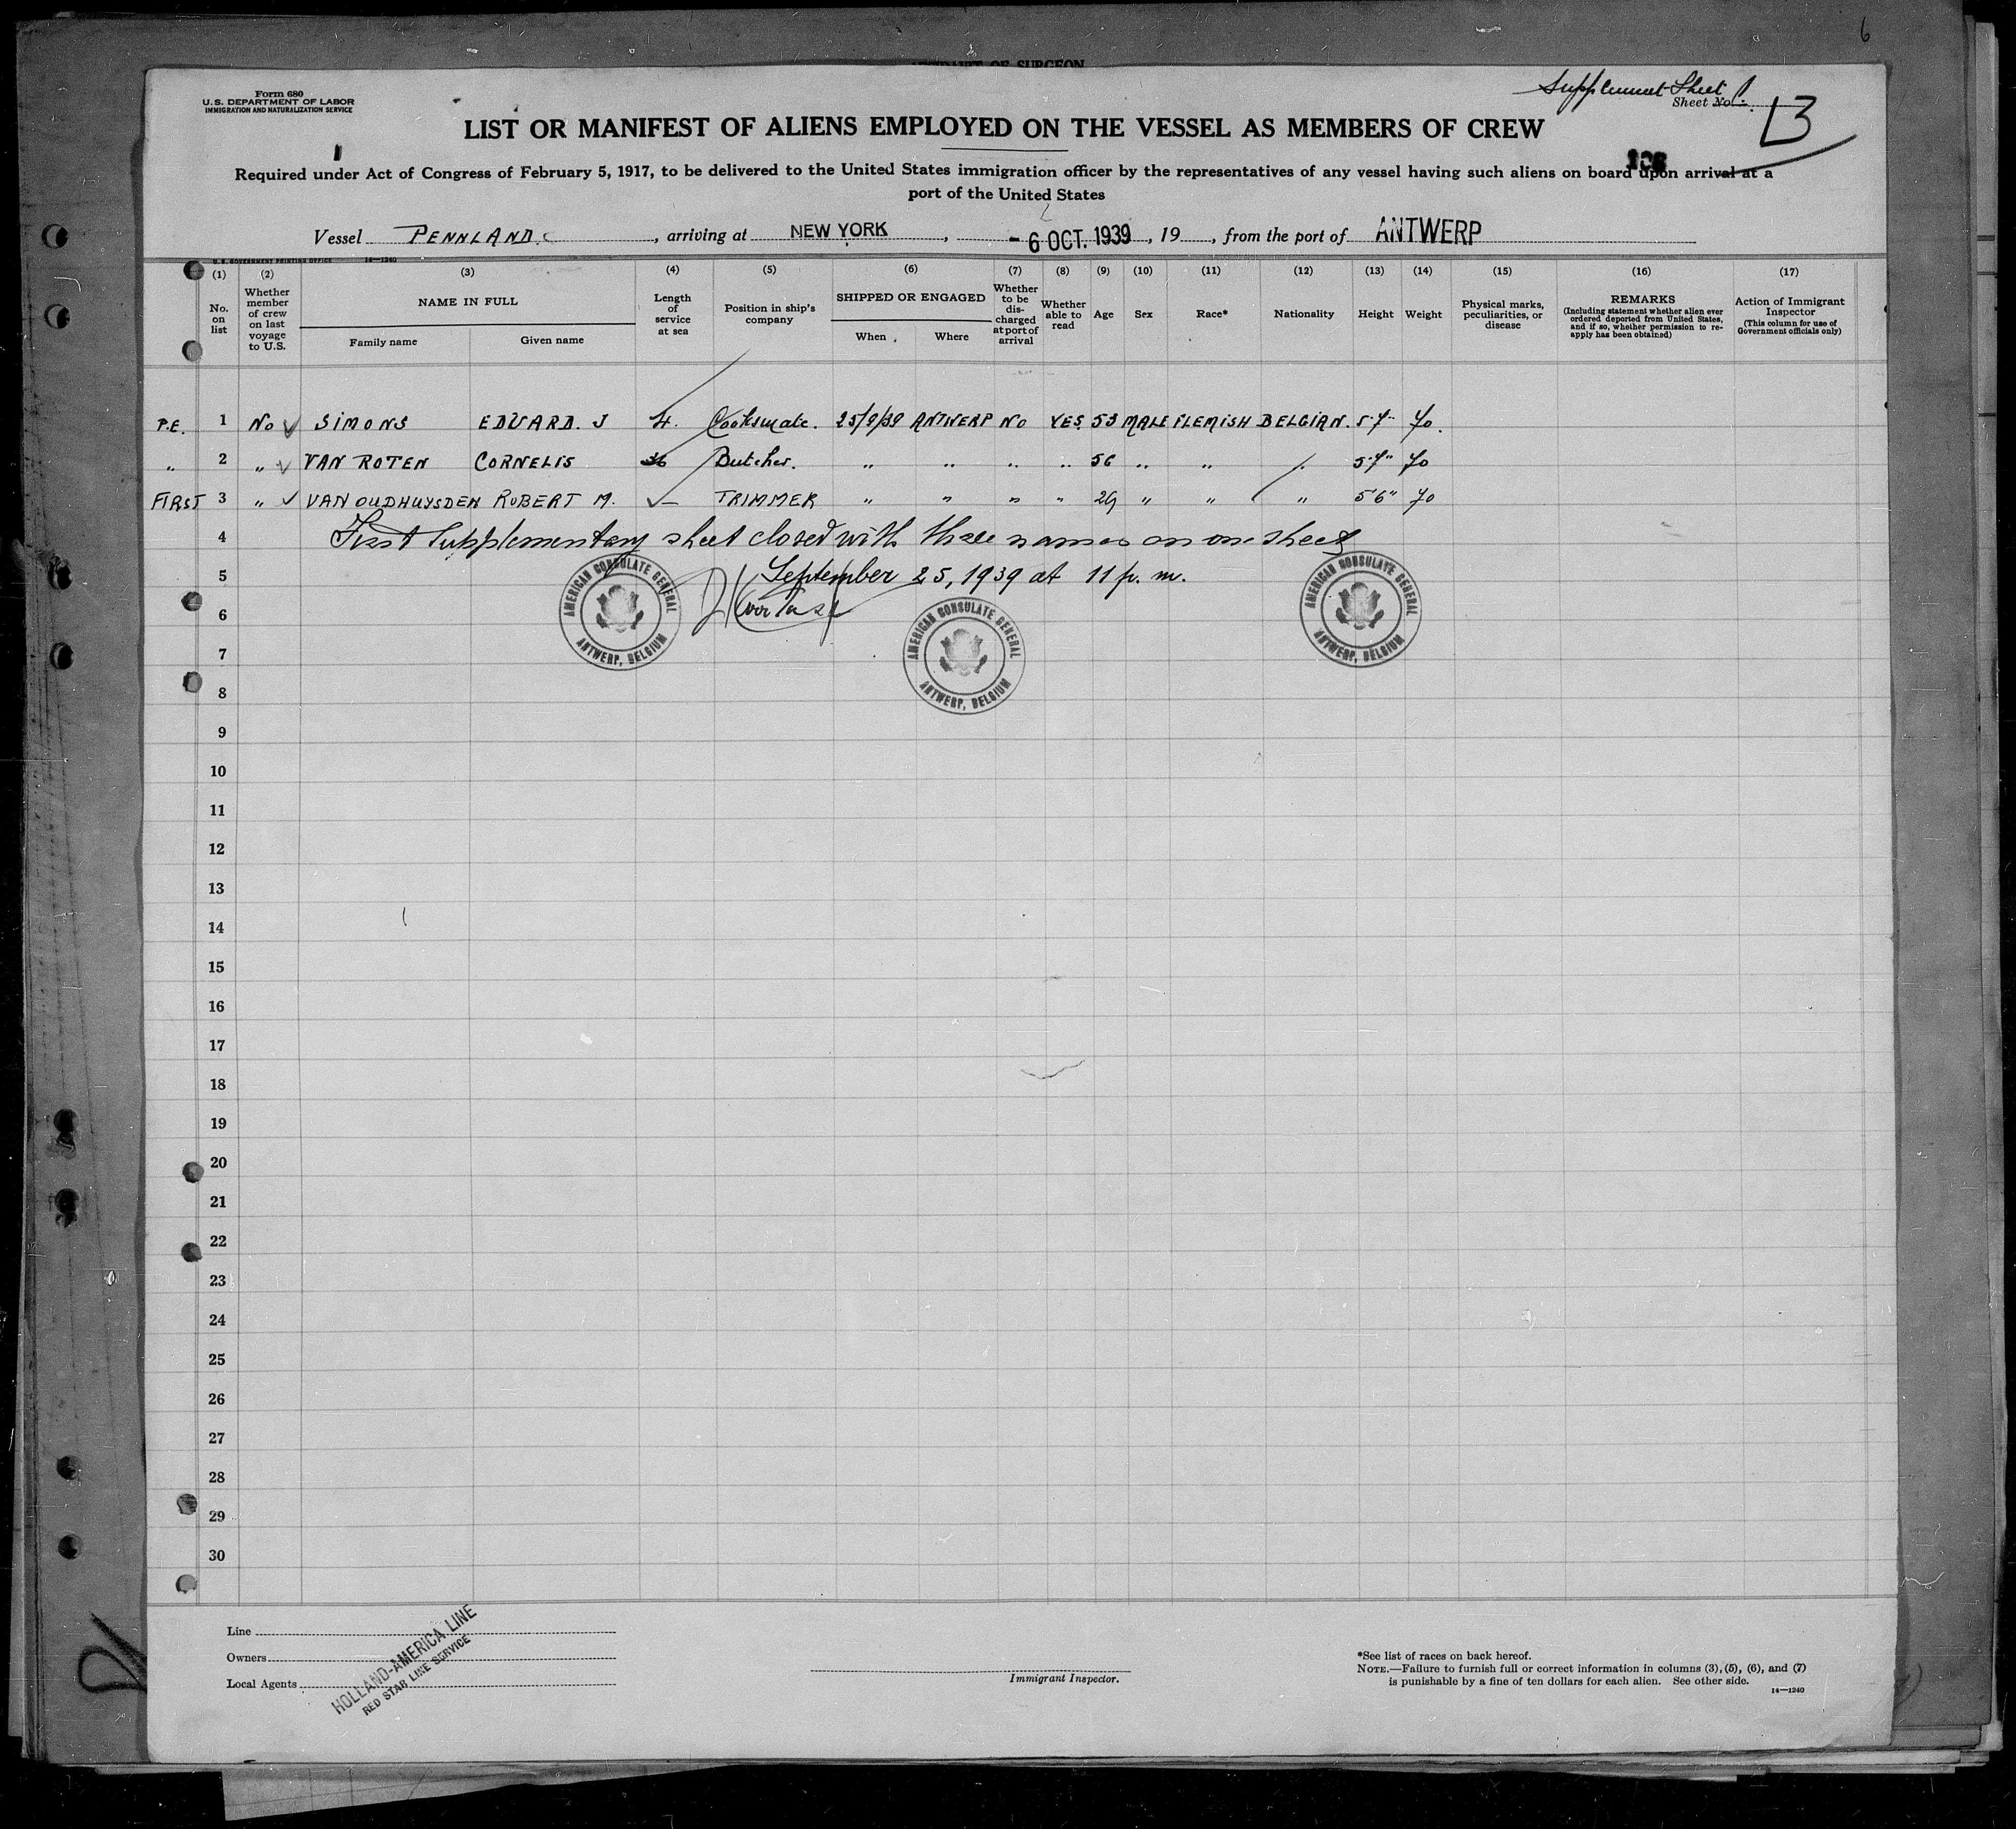 6
AFFIDAVIT OF SURGEON
Form 680
U.S. DEPARTMENT OF LABOR
IMMIGRATION AND NATURALIZATION SERVICE
Supplement Sheet 1
Sheet No.
L3
LIST OR MANIFEST OF ALIENS EMPLOYED ON THE VESSEL AS MEMBERS OF CREW
Required under Act of Congress of February 5, 1917, to be delivered to the United States immigration officer by the representatives of any vessel having such aliens on board upon arrival at a
port of the United States
Vessel PENNLAND, arriving at NEW YORK, - 6 OCT. 1939, 19, from the port of ANTWERP
U. S. GOVERNMENT PRINTING OFFICE 14—1240
(1) (2) (3) (4) (5) (6) (7) (8) (9) (10) (11) (12) (13) (14) (15) (16) (17)
No. on list
Whether member of crew on last voyage to U.S.
NAME IN FULL
Family name Given name
Length of service at sea
Position in ship's company
SHIPPED OR ENGAGED
When Where
Whether to be discharged at port of arrival
Whether able to read
Age
Sex
Race*
Nationality
Height
Weight
Physical marks, peculiarities, or disease
REMARKS
(Including statement whether alien ever ordered deported from United States, and if so, whether permission to re-apply has been obtained)
Action of Immigrant Inspector
(This column for use of Government officials only)
P.E. 1 No SIMONS EDUARD. J 4. Cooksmate. 25/9/39 ANTWERP NO YES 53 MALE FLEMISH BELGIAN. 5'7" 70.
" 2 " VAN ROTEN CORNELIS 36 Butcher. " " " " 56 " " " 5'7" 70
FIRST 3 " VAN OUDHUYSDEN ROBERT M. — TRIMMER " " " " 29 " " " 5'6" 70
4 First Supplementary sheet closed with three names on one sheet
5 September 25, 1939 at 11 p. m.
AMERICAN CONSULATE GENERAL ANTWERP, BELGIUM
AMERICAN CONSULATE GENERAL ANTWERP, BELGIUM
AMERICAN CONSULATE GENERAL ANTWERP, BELGIUM
6
7
8
9
10
11
12
13
14
15
16
17
18
19
20
21
22
23
24
25
26
27
28
29
30
Line
Owners
Local Agents
HOLLAND-AMERICA LINE
RED STAR LINE SERVICE
Immigrant Inspector.
*See list of races on back hereof.
NOTE.—Failure to furnish full or correct information in columns (3), (5), (6), and (7)
is punishable by a fine of ten dollars for each alien. See other side.
14—1240